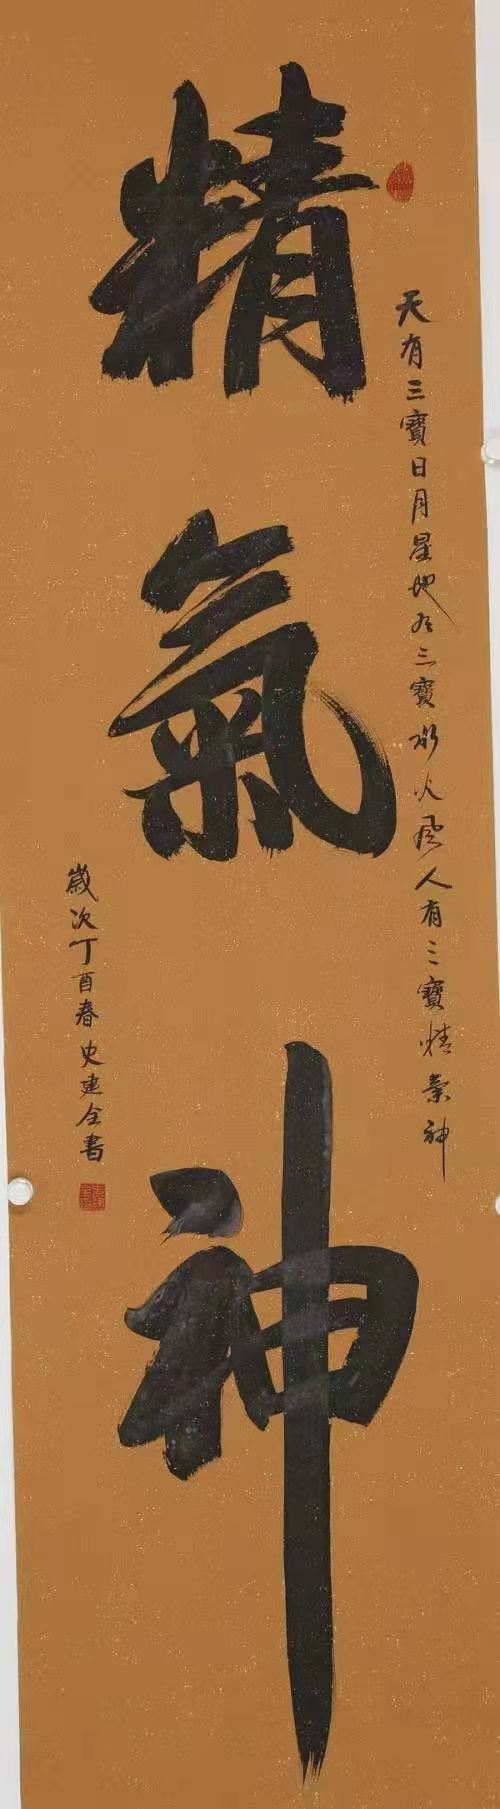 天有三寶日月星地有三寶水火風人有三寶精氣神
精氣神
歲次丁酉春史建全書